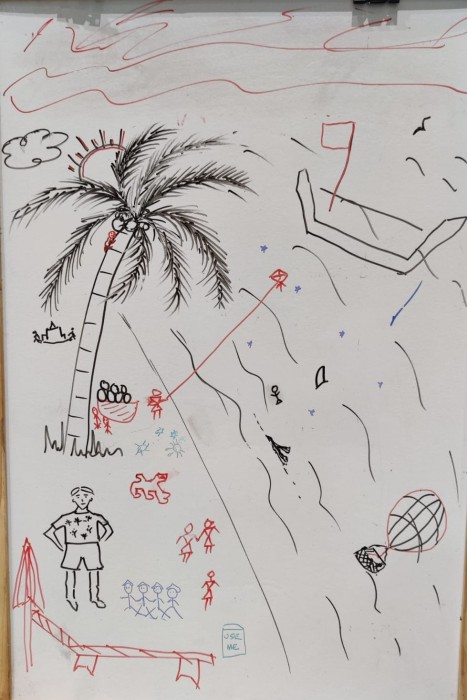 USE
ME